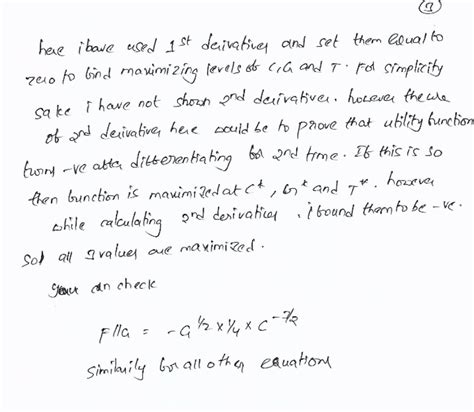 (9)
here i have used 1st derivatives and set them equal to
zero to find maximizing levels of C, G and T. For simplicity
sake i have not shown 2nd derivatives. however the use
of 2nd derivative here would be to prove that utility function
turns -ve after differentiating for 2nd time. If this is so
then function is maximized at C*, G* and T*. however
while calculating 2nd derivatives, i found them to be -ve.
So all values are maximized.
you can check
F11G = -G^1/2 x 1/4 x C^-3/2
similarily for all other equations